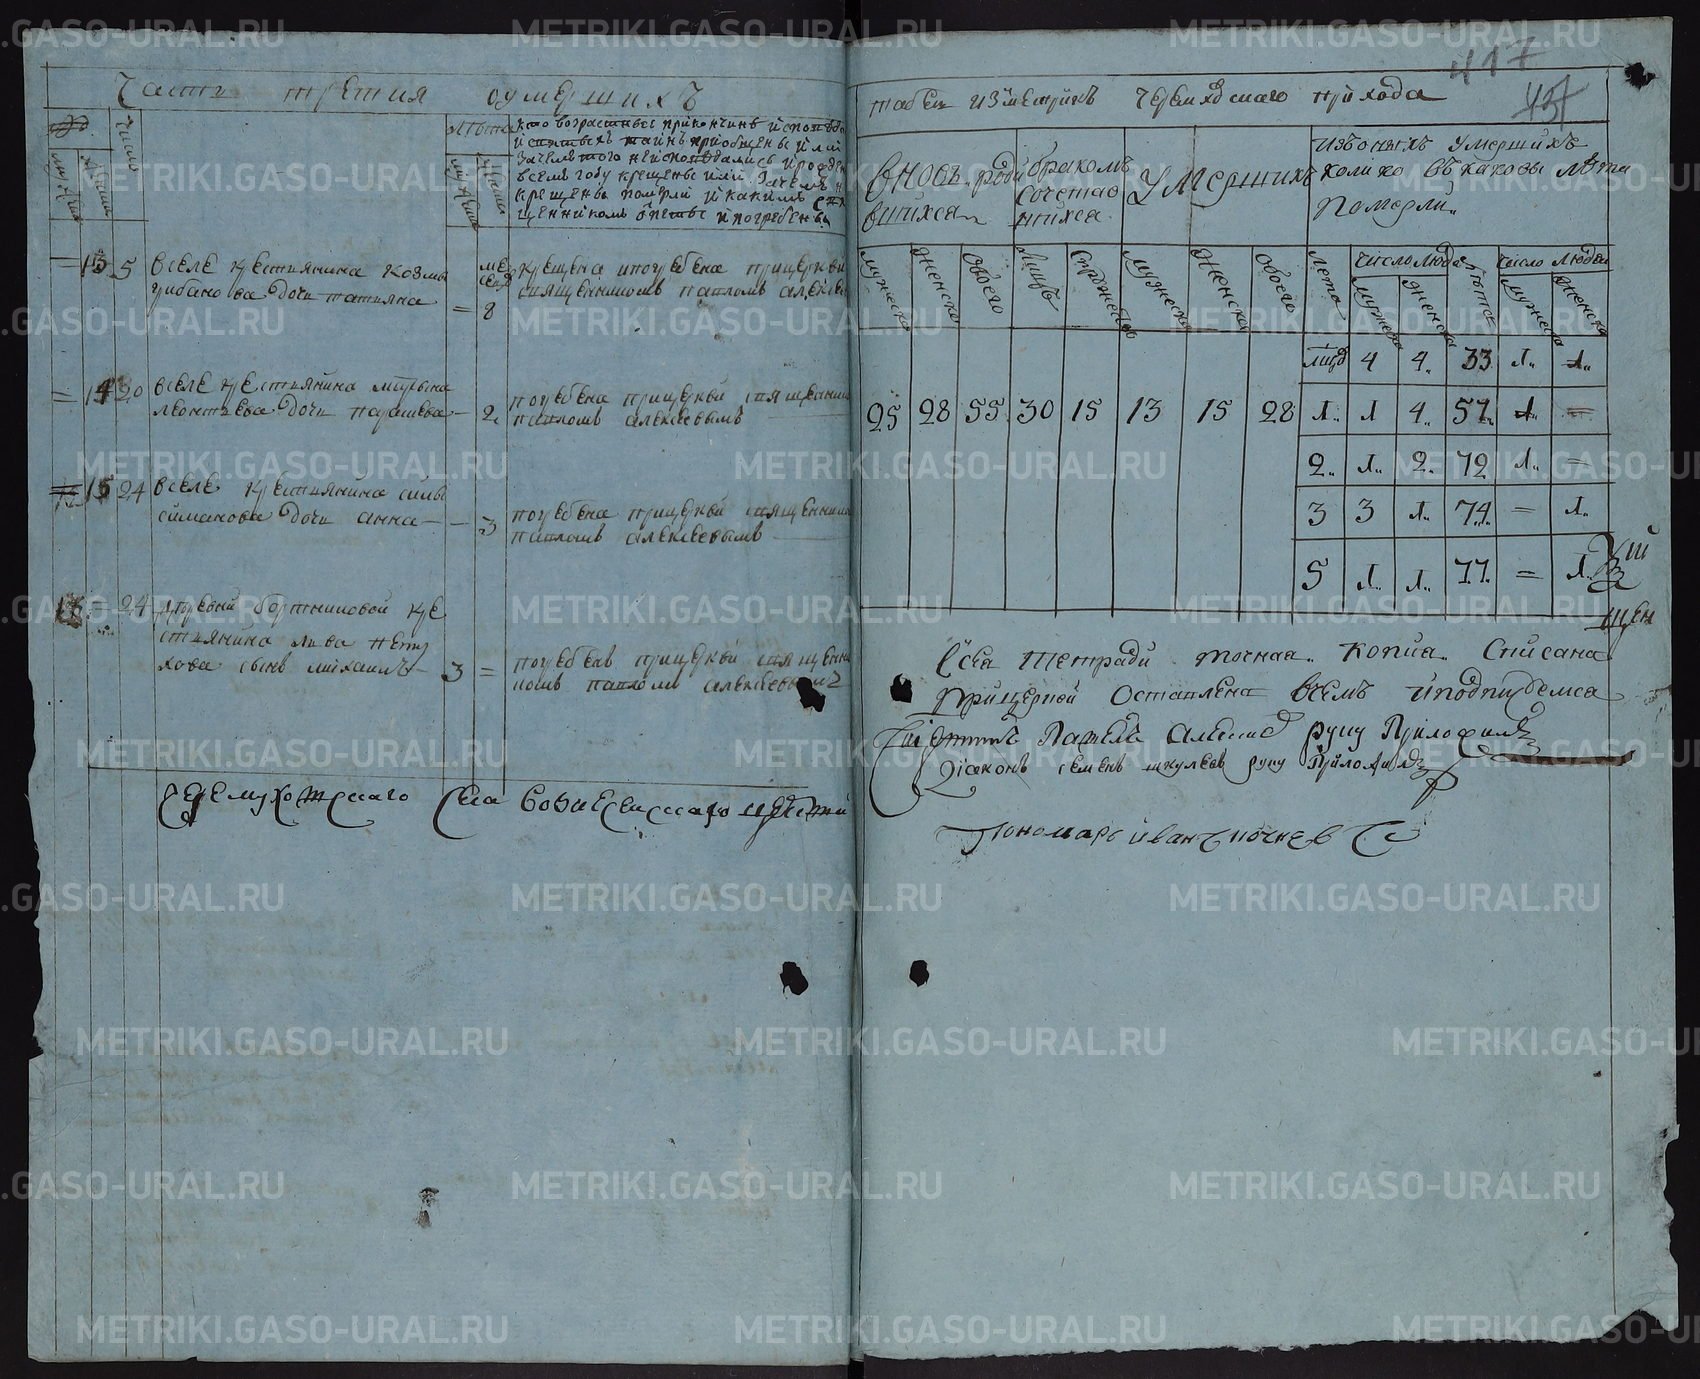 METRIKI.GASO-URAL.RU
417
Часть третия оумершихъ
Число
лѣта
кто возрастные при кончинѣ исповѣда
и святыхъ таинъ приобщены или
зачемъ того не исповѣдались и рожден
всемъ году крещены или зачемъ н
крещены померли и какимъ свя
щенникомъ ѿпеты и погребены
13 5 вселе крестиянина козмы
урбанова дочь татияна = 8
мѣ
крещена ипогребена прицеркви
священникомъ павломъ алексѣевы
= 14 20 вселе крестиянина
леонтиева дочь парасковья — 2
погребена прицеркви священни
павломъ алексеевымъ
15 24 вселе крестиянина силы
симанова дочь анна — — 3
погребена прицеркви священни
павломъ алексеевымъ
16 = 24 деревни бортниковой кре
стиянина
сынъ михаилъ 3 =
погребенъ прицеркви священни
комъ павломъ алексеевымъ
села вознесенской церкви
табель изметрикъ прихода
вновь роди
вшихся
бракомъ
сочетав
шихся
умершихъ
извонихъ умершихъ
колико въ каковы лѣта
померли
мужеска
женска
обоего
лицъ
супружествъ
мужеска
женска
обоего
лета
число людей
мужеска
женска
лета
число людей
мужеска
женска
25 28 55 30 15 13 15 28
млад 4 4 33 1 1
1 1 4 57 1 =
2 1 2 72 1 =
3 3 1 74 = 1
5 1 1 77 = 1
Ссеа тетради точная копиа списана
прицеркви оставлена всемъ и подписуемса
Павелъ Алексиев руку Приложилъ
Диаконъ семенъ шкулевъ руку Приложилъ
Пономарь иванъ
щен